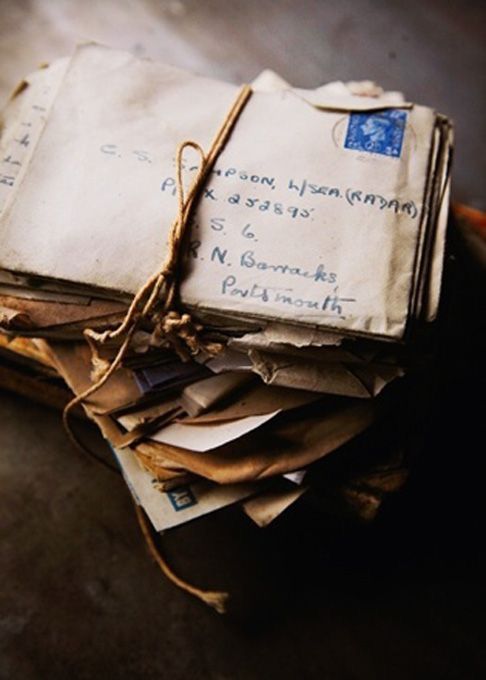 C. S. L/SEA.(RADAR)
252895.
S. 6.
R. N. Barracks,
Portsmouth
BY